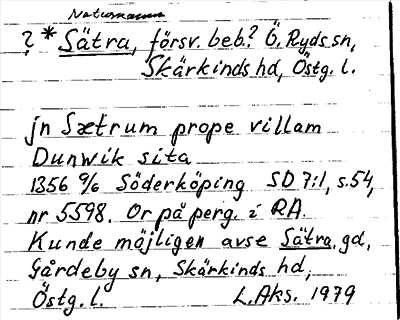 Naturnamn
? * Sätra, försv. beb.? Ö. Ryds sn,
Skärkinds hd, Östg. l.
jn Sætrum prope villam
Dunwik sita
1356 9/6 Söderköping SD 7:1, s.54,
nr 5598. Or på perg. i RA.
Kunde möjligen avse Sätra, gd,
Gårdeby sn, Skärkinds hd,
Östg. l. L. Aks. 1979